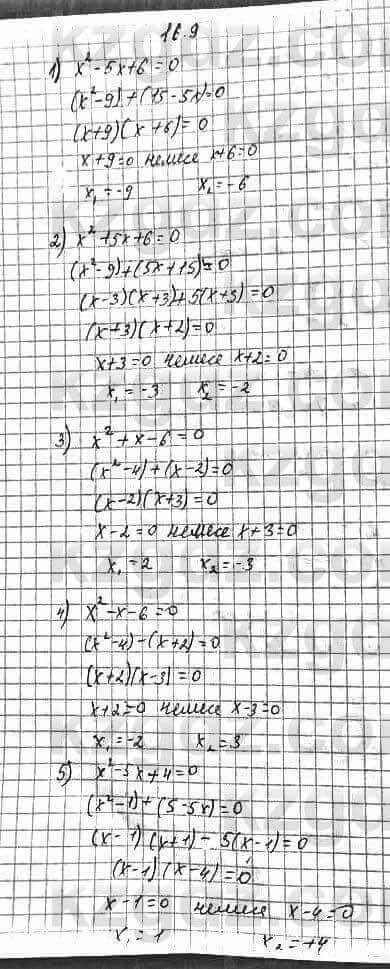 16.9
1) x²-5x+6=0
(x²-9)+(15-5x)=0
(x+9)(x+6)=0
x+9=0 немесе x+6=0
x₁=-9 x₂=-6
2) x²+5x+6=0
(x²-9)+(5x+15)=0
(x-3)(x+3)+5(x+3)=0
(x+3)(x+2)=0
x+3=0 немесе x+2=0
x₁=-3 x₂=-2
3) x²+x-6=0
(x²-4)+(x-2)=0
(x-2)(x+3)=0
x-2=0 немесе x+3=0
x₁=2 x₂=-3
4) x²-x-6=0
(x²-4)-(x+2)=0
(x+2)(x-3)=0
x+2=0 немесе x-3=0
x₁=-2 x₂=3
5) x²-5x+4=0
(x²-1)+(5-5x)=0
(x-1)(x+1)-5(x-1)=0
(x-1)(x-4)=0
x-1=0 немесе x-4=0
x₁=1 x₂=+4